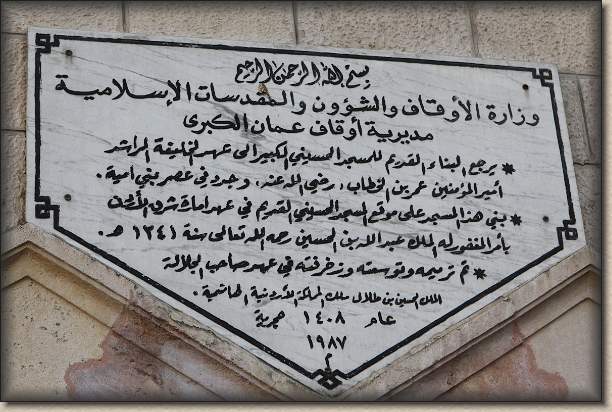 بسم الله الرحمن الرحيم
وزارة الأوقاف والشؤون والمقدسات الإسلامية
مديرية أوقاف عمان الكبرى
* يرجع البناء القديم للمسجد الحسيني الكبير الى عهد الخليفة الراشد
أمير المؤمنين عمر بن الخطاب، رضي الله عنه، وجدد في عصر بني أمية.
* بني هذا المسجد على موقع المسجد الحسيني القديم في عهد امارة شرق الأردن
بأمر المغفور له الملك عبد الله بن الحسين رحمه الله تعالى سنة ١٣٤١ هـ.
* تم ترميمه وتوسعته وزخرفته في عهد صاحب الجلالة
الملك الحسين بن طلال ملك المملكة الأردنية الهاشمية.
عام ١٤٠٨ هجرية
١٩٨٧
م